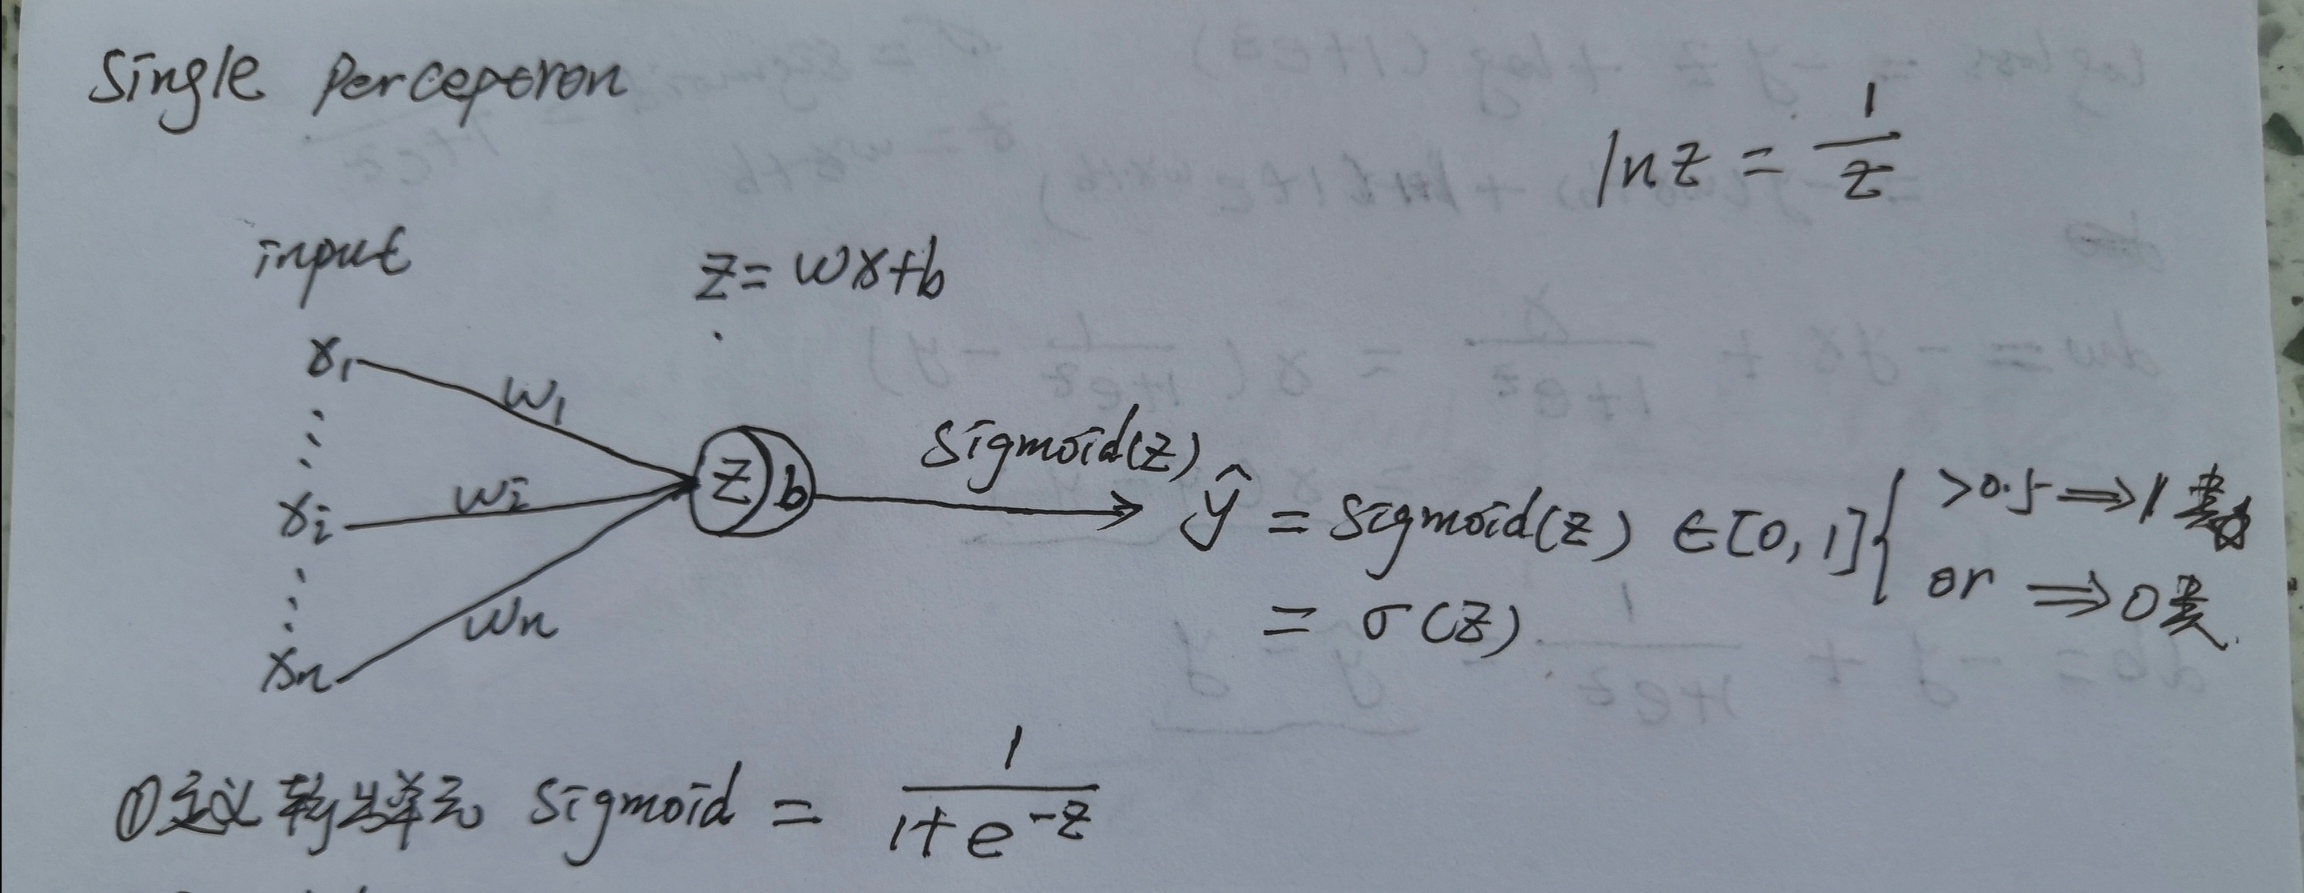 Single perceptron
ln z = 1/z
input
z = wx+b
x1
w1
xi
wi
xn
wn
z b
sigmoid(z)
ŷ = sigmoid(z) ∈ [0, 1] { >0.5 ⇒ 1类
or ⇒ 0类
= σ(z)
①定义输出单元 sigmoid = 1/(1+e^-z)